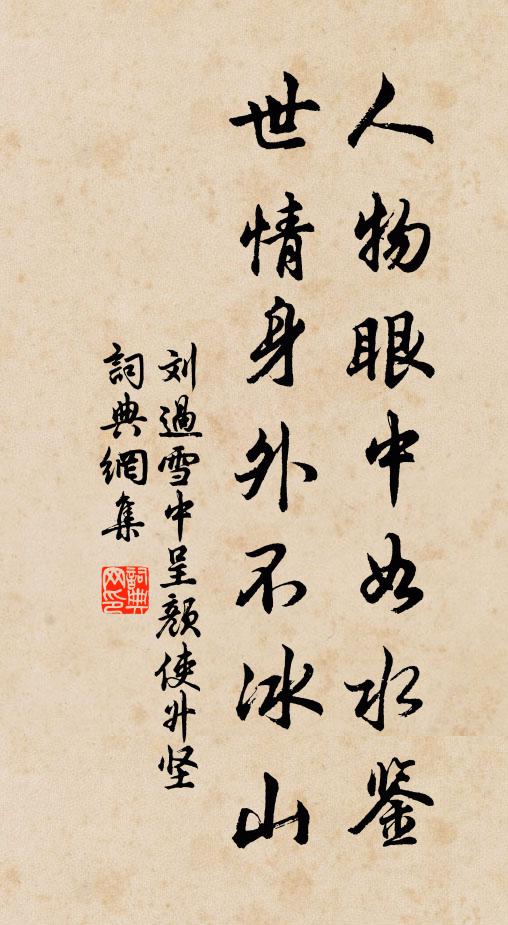 人物眼中如水鉴
世情身外不冰山
刘過雪中呈颜使升坚
詞典網集
詞典网印